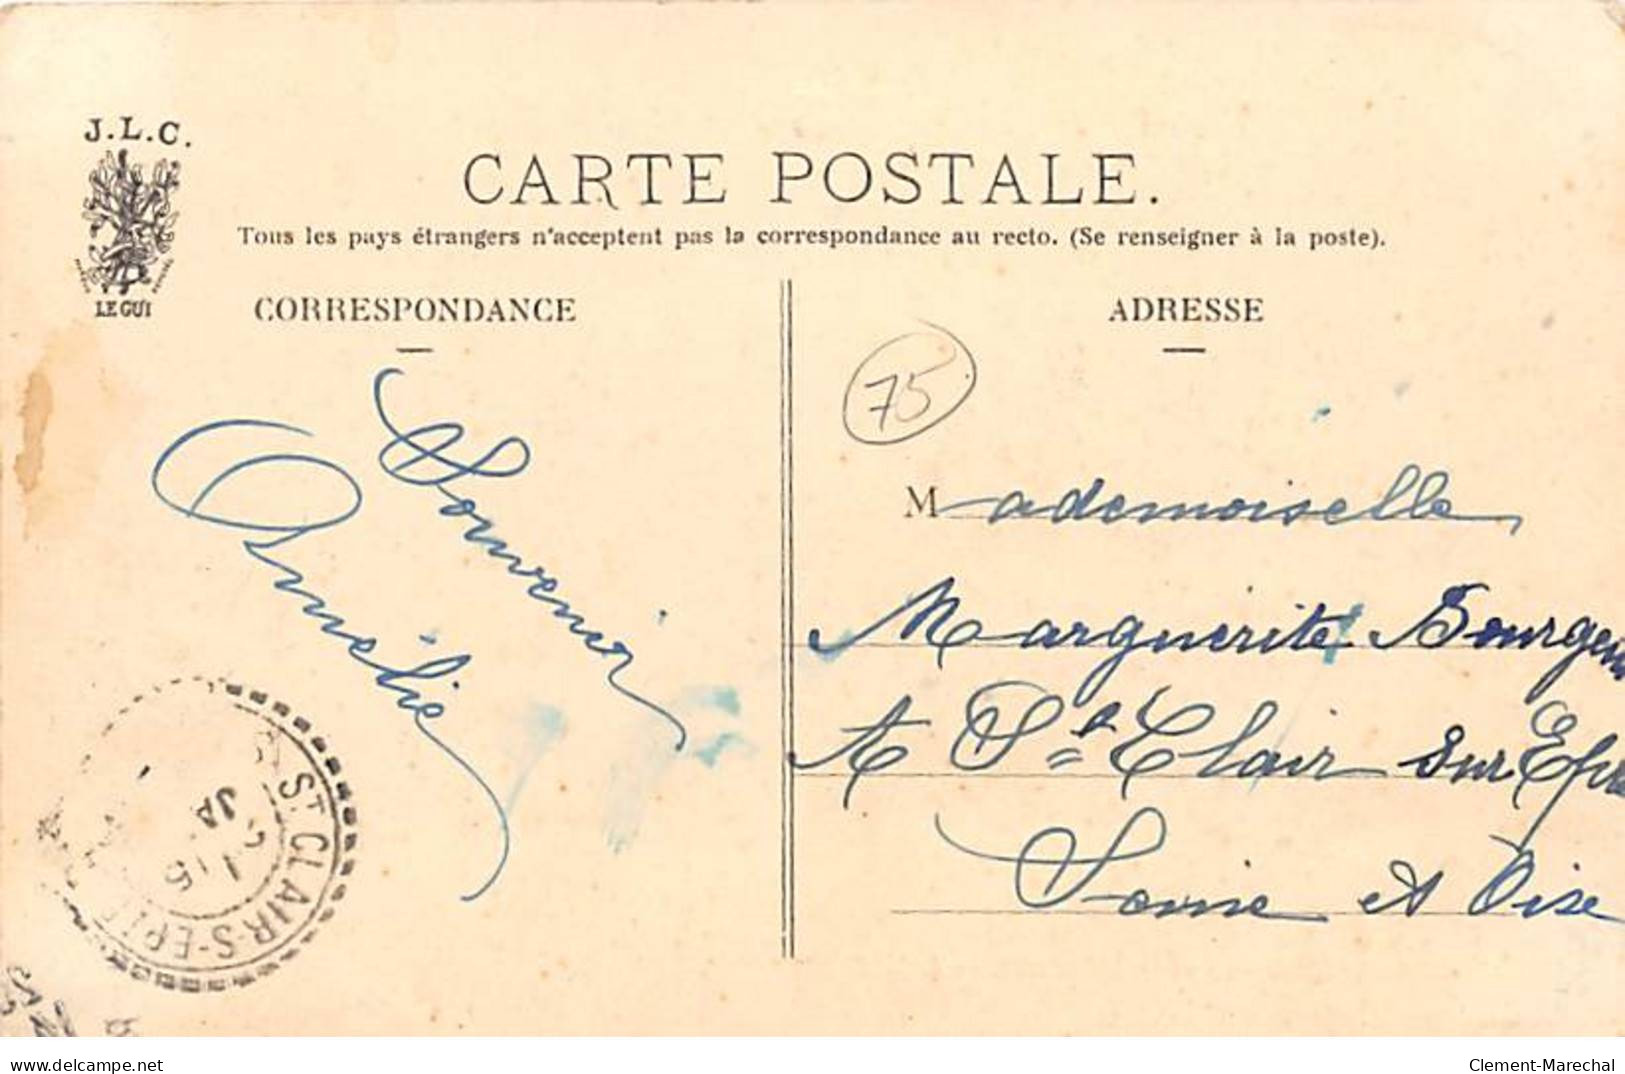 J.L.C.
LE GUI
CARTE POSTALE.
Tous les pays étrangers n'acceptent pas la correspondance au recto. (Se renseigner à la poste).
CORRESPONDANCE
Souvenir
Amélie
ADRESSE
75
Mademoiselle
Marguerite
A St Clair sur
Seine et Oise
ST CLAIR-S-
JA
delcampe.net
Clement-Marechal